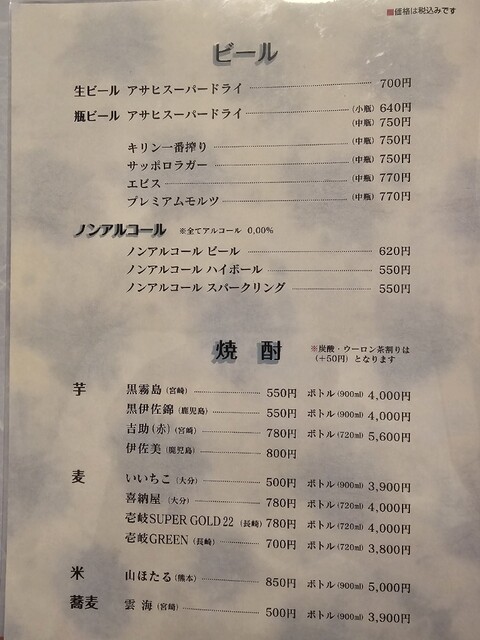 ■価格は税込みです
ビール
生ビール アサヒスーパードライ 700円
瓶ビール アサヒスーパードライ (小瓶) 640円
(中瓶) 750円
キリン一番搾り (中瓶) 750円
サッポロラガー (中瓶) 750円
エビス (中瓶) 770円
プレミアムモルツ (中瓶) 770円
ノンアルコール ※全てアルコール 0,00%
ノンアルコール ビール 620円
ノンアルコール ハイボール 550円
ノンアルコール スパークリング 550円
焼酎 ※炭酸・ウーロン茶割りは
(+50円) となります
芋 黒霧島 (宮崎) 550円 ボトル(900ml) 4,000円
黒伊佐錦 (鹿児島) 550円 ボトル(900ml) 4,000円
吉助(赤) (宮崎) 780円 ボトル(720ml) 5,600円
伊佐美 (鹿児島) 800円
麦 いいちこ (大分) 500円 ボトル(900ml) 3,900円
喜納屋 (大分) 780円 ボトル(720ml) 4,000円
壱岐SUPER GOLD 22 (長崎) 780円 ボトル(720ml) 4,000円
壱岐GREEN (長崎) 700円 ボトル(720ml) 3,800円
米 山ほたる (熊本) 850円 ボトル(900ml) 5,000円
蕎麦 雲海 (宮崎) 500円 ボトル(900ml) 3,900円